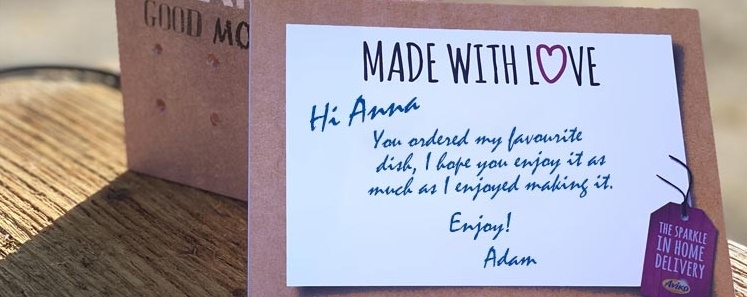 GOOD MO
MADE WITH LOVE
Hi Anna
You ordered my favourite
dish, I hope you enjoy it as
much as I enjoyed making it.
Enjoy!
Adam
THE SPARKLE
IN HOME
DELIVERY
Aviko